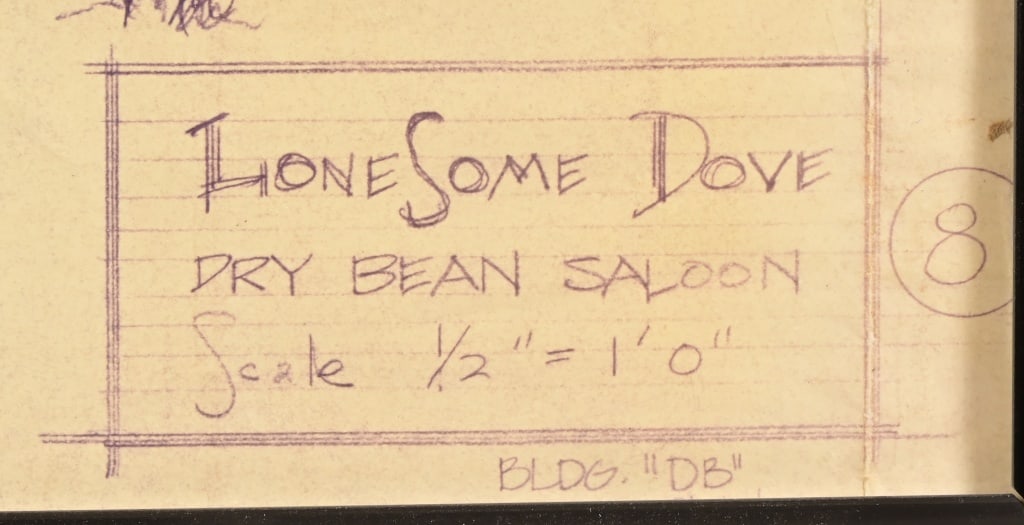 LONESOME DOVE
DRY BEAN SALOON
Scale 1/2" = 1' 0"
8
BLDG. "DB"